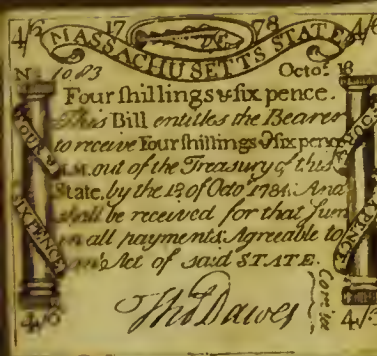 4/6 17 78 4/6
MASSACHUSETTS STATE
N 1083 Octo.r 18
Four ſhillings & ſix pence.
This Bill entitles the Bearer
to receive Four ſhillings & ſix pence
L.M. out of the Treasury of this
State, by the 18 of Octo.r 1784. And
shall be received for that ſum
in all payments, Agreeable to
an Act of said STATE.
FOUR SIX PENCE
SIX PENCE
Tho.s Dawes
4/6 4/6